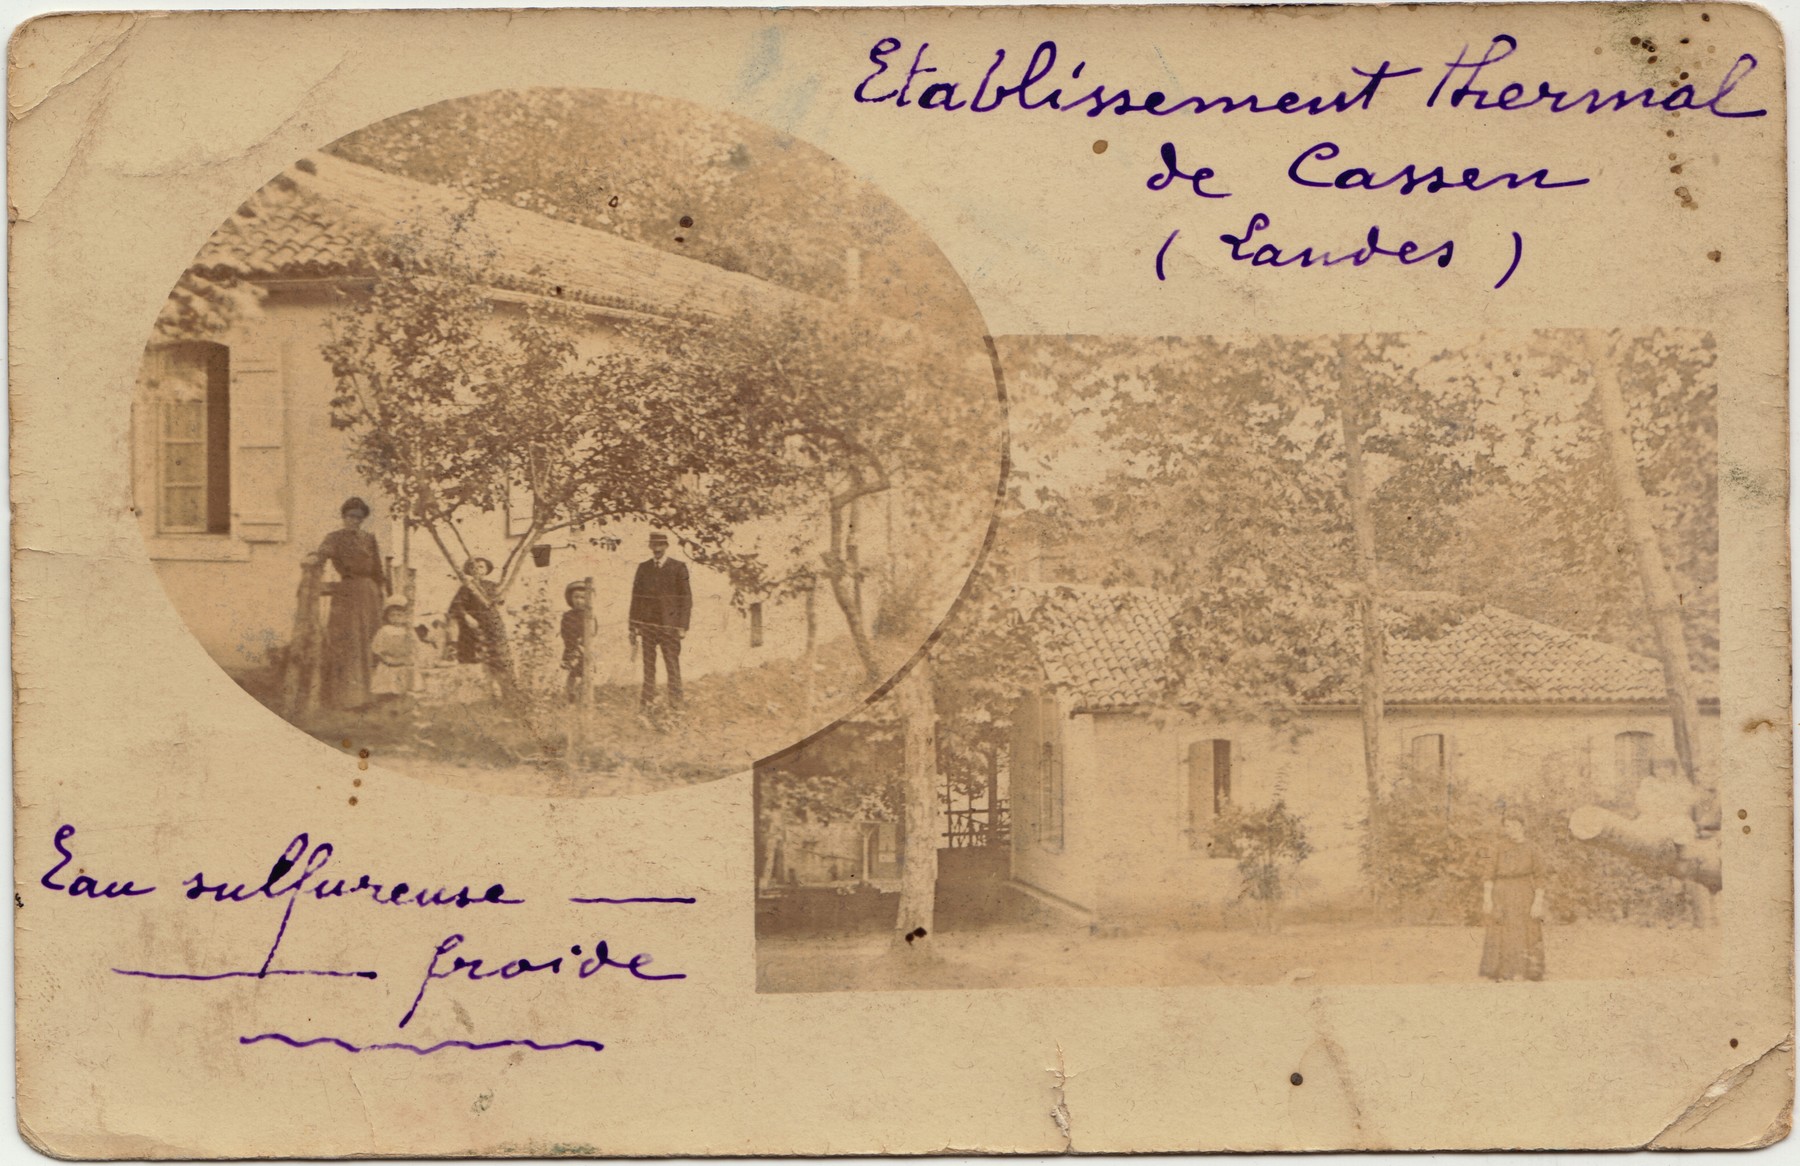 Etablissement thermal
de Cassen
(Landes)
Eau sulfureuse —
— froide